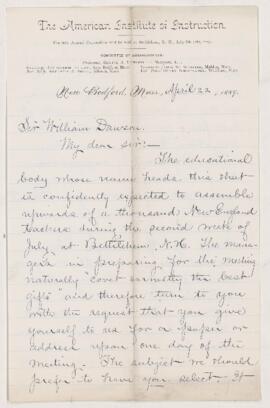 The American Institute of Instruction.
New Bedford, Mass, April 22, 1889.
Sir William Dawson,
My dear sir:—
The educational
body whose name heads this sheet
is confidently expected to assemble
upwards of a thousand New England
teachers during the second week of
July, at Bethlehem, N.H. The mana-
gers in preparing for the meeting
naturally covet earnestly the best
gifts and therefore turn to you
with the request that you give
yourself to us for a paper or
address upon one day of the
meeting. The subject we should
prefer to have you select. It